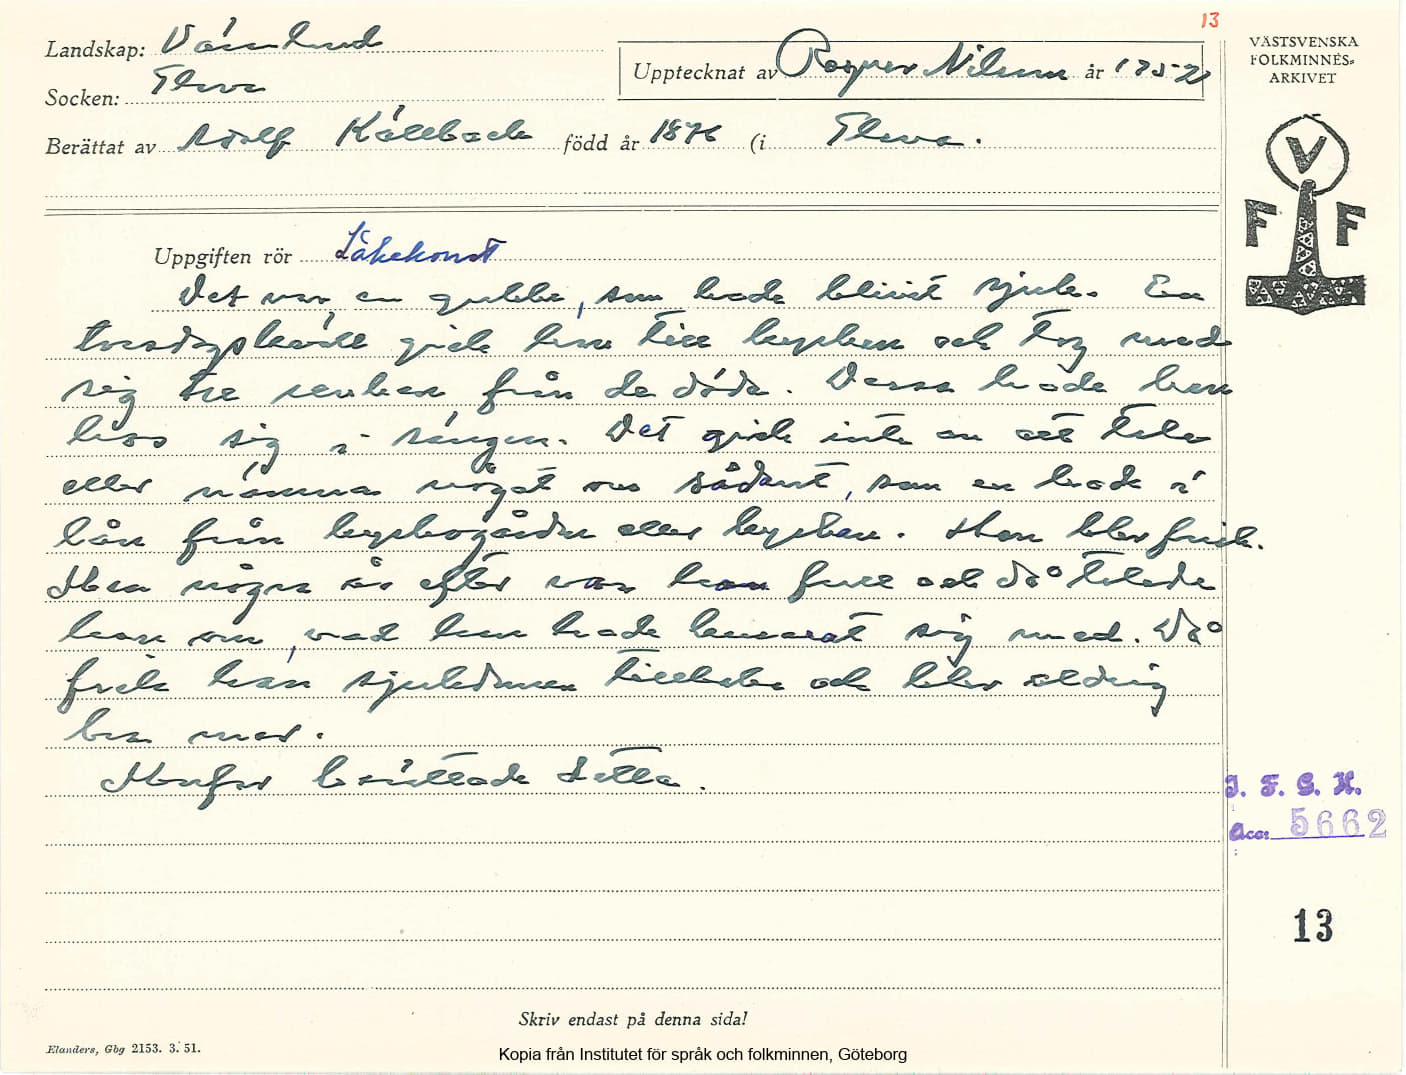 13
Landskap: Värmland
Socken: Älvsbacka
Upptecknat av Ragnar Nilsson år 1952
Berättat av Adolf Källback född år 1876 (i
VÄSTSVENSKA
FOLKMINNES=
ARKIVET
V
F F
Uppgiften rör Läkekonst
Det var en gubbe, som hade blivit sjuk. En
torsdagskväll gick han till kyrkan och tog med
sig tre from de döda. Dessa hade han
hos sig i sängen. Det gick inte an att tala
eller nämna något om sådant, som en hade i
lån från kyrkogården eller kyrkan. Han blev frisk.
Men några år efter var han full och då talade
han om, vad han hade kurerat sig med. Då
fick han sjukdomen tillbaka och blev aldrig
bra mer.
Morfar berättade detta.
I. F. G. H.
Acc: 5662
13
Skriv endast på denna sida!
Elanders, Gbg 2153. 3. 51.
Kopia från Institutet för språk och folkminnen, Göteborg